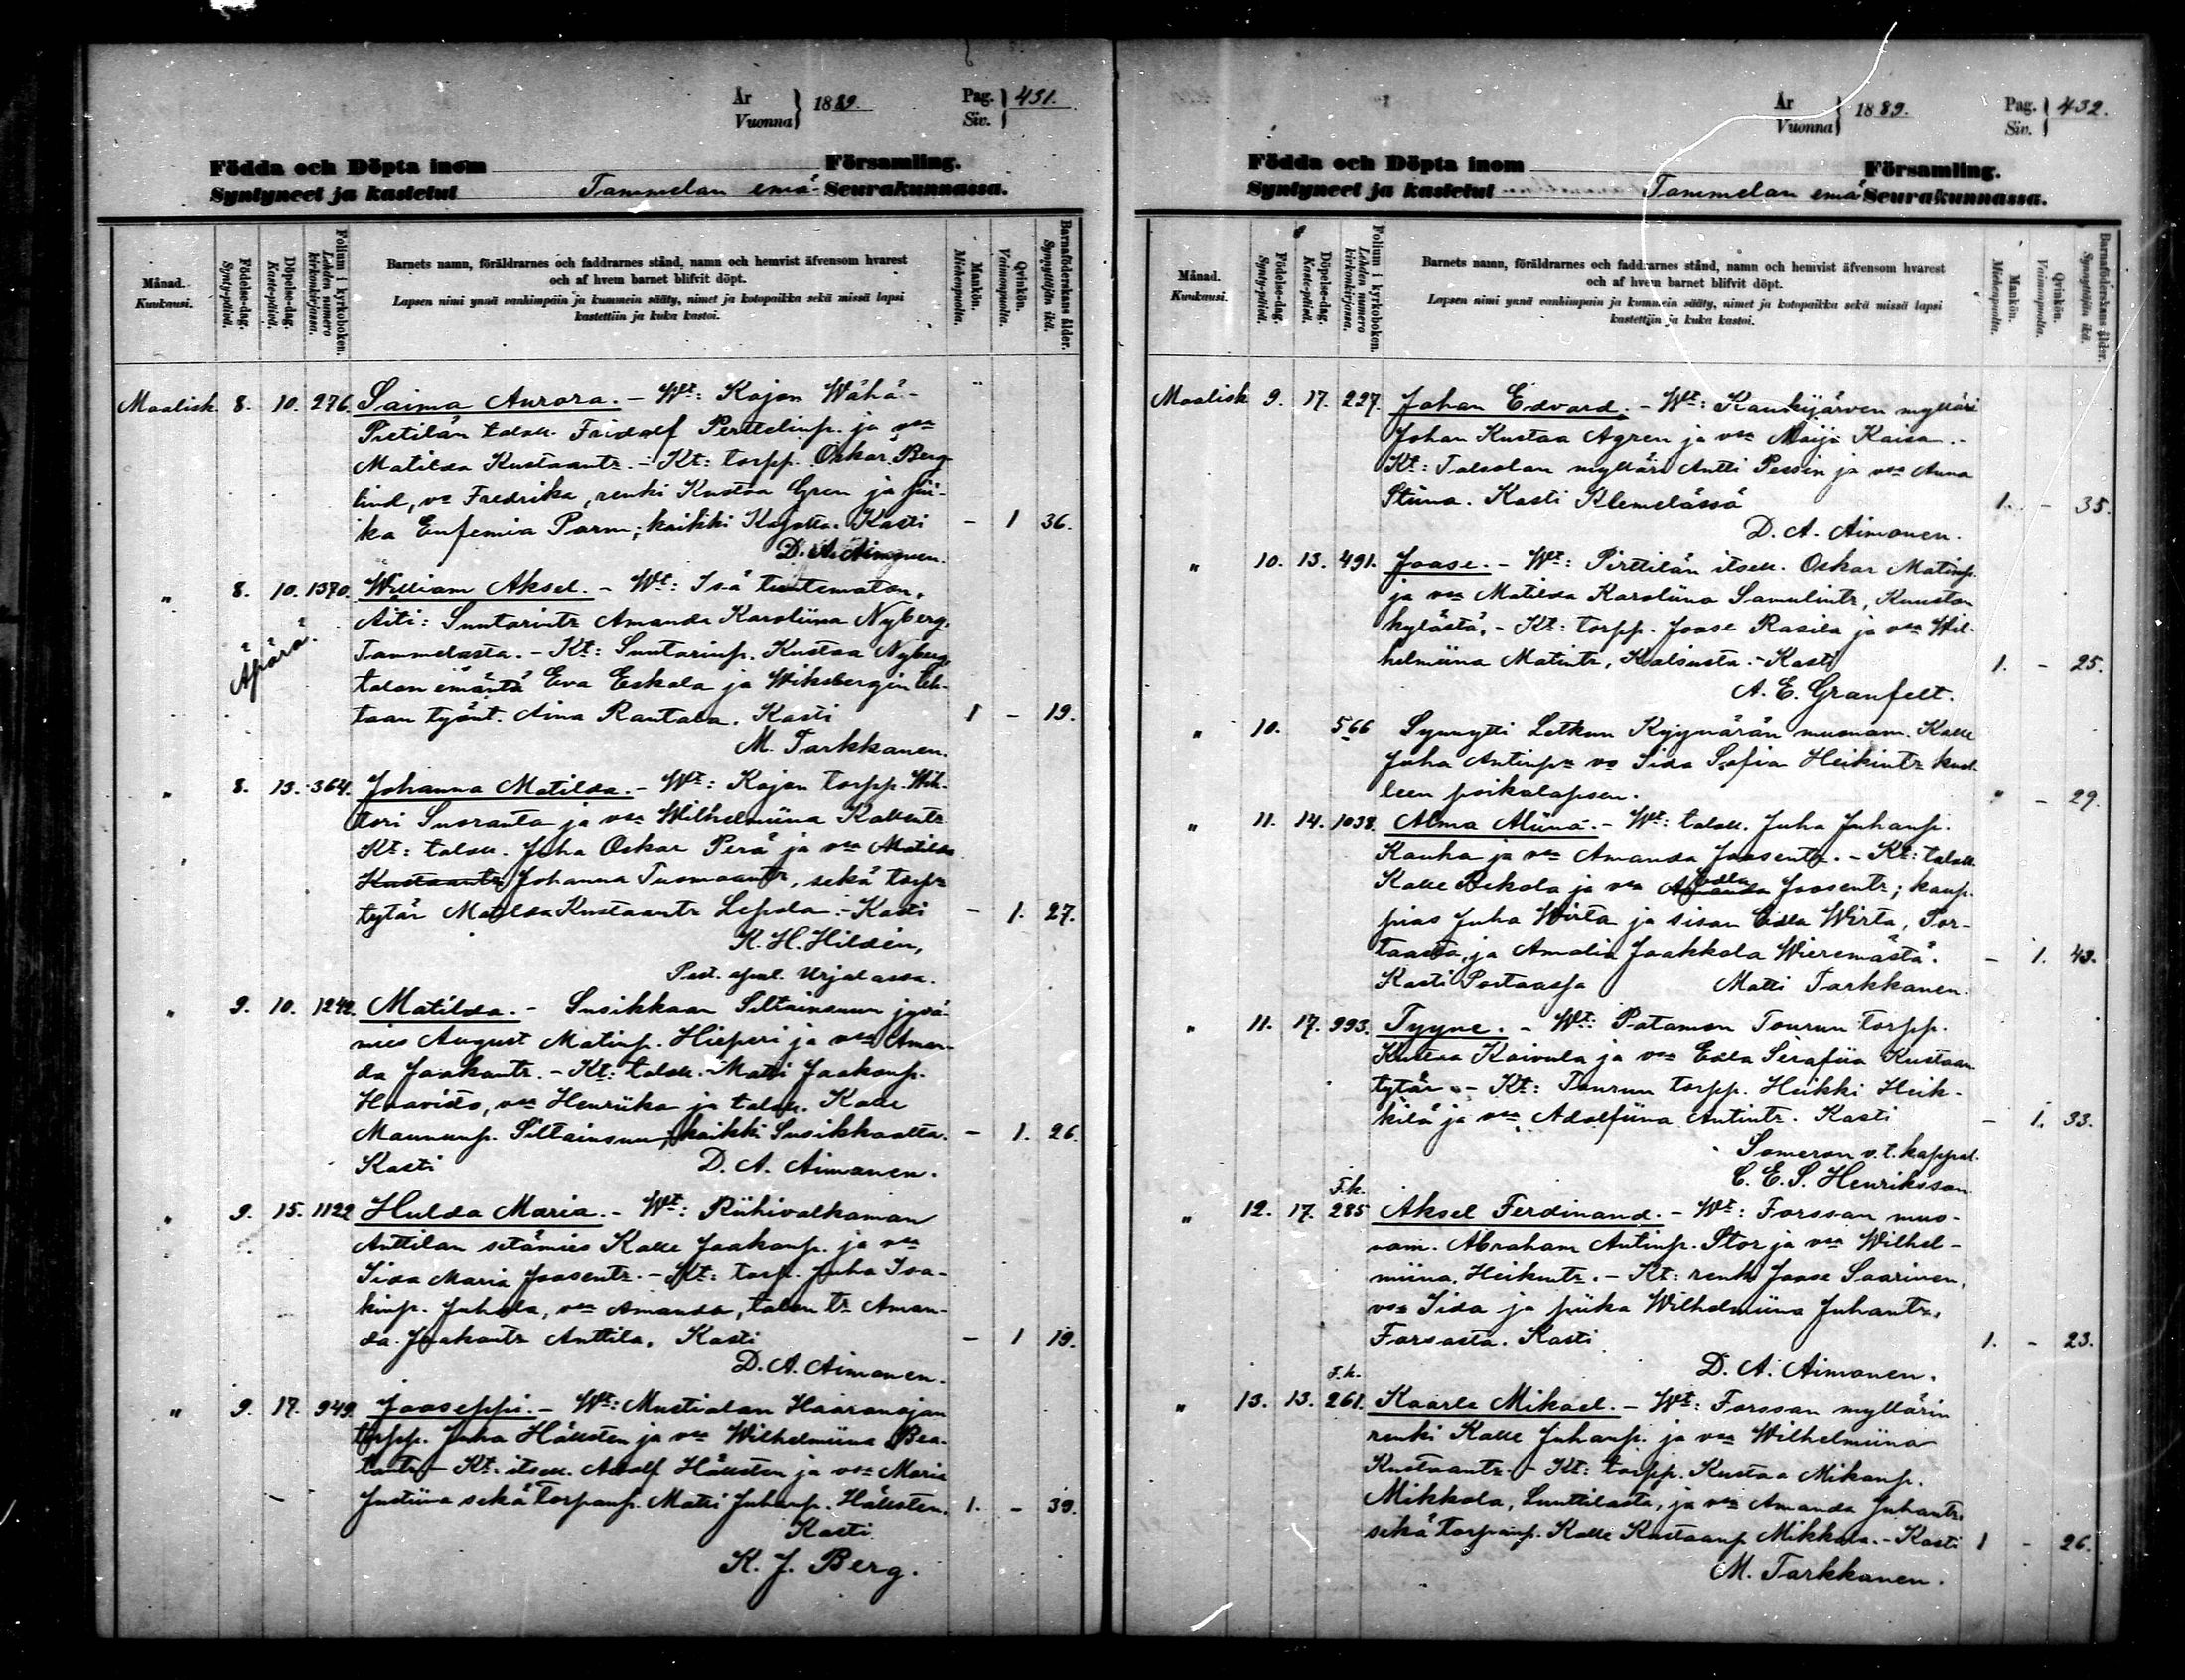 År
Vuonna } 1889.
Pag.
Siv. } 431.
Födda och Döpta inom Församling.
Syntyneet ja kastetut Tammelan emä- Seurakunnassa.
Månad.
Kuukausi.
Födelse-dag.
Synty-päivä.
Döpelse-dag.
Kaste-päivä.
Folium i kyrkoboken.
Lehden numero kirkonkirjassa.
Barnets namn, föräldrarnes och faddrarnes stånd, namn och hemvist äfvensom hvarest
och af hvem barnet blifvit döpt.
Lapsen nimi ynnä vanhimpain ja kummein sääty, nimet ja kotopaikka sekä missä lapsi
kastettiin ja kuka kastoi.
Mankön.
Miehenpuolta.
Qvinkön.
Vaimonpuolta.
Barnaföderskans ålder.
Synnyttäjän ikä.
Maalisk. 8. 10. 276. Saima Aurora. - Wt: Kojon Wähä-
Pietilän taloll. Fridolf Perttelinp. ja vmo
Matilda Kustaantr. - Kt: torpp. Oskar Berg-
lind, vo Fredrika, renki Kustaa Gren ja pii-
ka Eufemia Parm; kaikki Kojolta. Kasti - 1 36.
D. A. Aimonen.
" 8. 10. 1370. William Aksel. - Wt: Isä tuntematon,
Äpärä.
Äiti: Suutarintr Amanda Karoliina Nyberg,
Tammelasta. - Kt: Suutarinp. Kustaa Nyberg,
talon emäntä Eva Eskola ja Wiksbergin teh-
taan työnt. Aina Rantala. Kasti 1 - 19.
M. Tarkkanen.
" 8. 13. 364. Johanna Matilda. - Wt: Kojon torpp. Wih-
tori Suoranta ja vmo Wilhelmiina Kallentr
Kt: taloll. Juha Oskar Perä ja vmo Matilda
Kustaantr Johanna Tuomaantr, sekä torp
tytär Matilda Kustaantr Lepola. - Kasti - 1. 27.
K. H. Hildén,
Past. apul. Urjalassa.
" 9. 10. 1242. Matilda. - Susikkaan Siltainsuun jyvä-
mies August Matinp. Hieperi ja vmo Aman-
da Jaakontr. - Kt: taloll. Matti Jaakonp.
Haavisto, vmo Henriika ja taloll. Kalle
Maununp. Siltainsuu, kaikki Susikkaalta. - 1. 26.
Kasti D. A. Aimonen.
" 9. 15. 1122 Hulda Maria. - Wt: Riihivalkaman
Anttilan setämies Kalle Jaakonp. ja vmo
Iida Maria Joosentr. - Kt: torp. Juha Isa-
kinp. Juhola, vmo Amanda, talon tr Aman-
da Jaakontr Anttila. Kasti - 1 19.
D. A. Aimonen.
" 9. 17. 949. Jooseppi. - Wt: Mustialan Haaranojan
torpp. Juha Hällsten ja vmo Wilhelmiina Bea-
tantr - Kt: itsell. Adolf Hällsten ja vmo Maria
Justiina sekä torpanp. Matti Juhanp. Hällsten. 1. - 39.
Kasti
K. J. Berg.
År
Vuonna } 1889.
Pag.
Siv. } 432.
Födda och Döpta inom Församling.
Syntyneet ja kastetut Tammelan emä Seurakunnassa.
Månad.
Kuukausi.
Födelse-dag.
Synty-päivä.
Döpelse-dag.
Kaste-päivä.
Folium i kyrkoboken.
Lehden numero kirkonkirjassa.
Barnets namn, föräldrarnes och faddrarnes stånd, namn och hemvist äfvensom hvarest
och af hvem barnet blifvit döpt.
Lapsen nimi ynnä vanhimpain ja kummein sääty, nimet ja kotopaikka sekä missä lapsi
kastettiin ja kuka kastoi.
Mankön.
Miehenpuolta.
Qvinkön.
Vaimonpuolta.
Barnaföderskans ålder.
Synnyttäjän ikä.
Maalisk 9. 17. 227. Johan Edvard. - Wt: Kaukijärven mylläri
Johan Kustaa Agren ja vmo Maija Kaisa. -
Kt: Talsolan mylläri Antti Pessin ja vmo Anna
Stiina. Kasti Klemelässä 1. - 35.
D. A. Aimonen.
" 10. 13. 491. Joose. - Wt: Pirttilän itsell. Oskar Matinp.
ja vmo Matilda Karoliina Samulintr, Kuuston
kylästä. - Kt: torpp. Joose Rasila ja vmo Wil-
helmiina Matintr, Kalsusta. - Kasti 1. - 25.
A. E. Granfelt.
" 10. 566 Synnytti Letkun Kyynärän muonam. Kalle
Juha Antinpn vo Iida Sofia Heikintr kuol-
leen poikalapsen. " - 29.
" 11. 14. 1038. Alma Aliina. - Wt: taloll. Juha Juhanp.
Kauha ja vmo Amanda Joosentr. - Kt: taloll
Kalle Rekola ja vmo Amanda Edla Joosentr; kaup-
pias Juha Wirta ja sisar Edla Wirta, Por-
taasta, ja Amalia Jaakkola Wieremästä. - 1. 43.
Kasti Portaassa Matti Tarkkanen.
" 11. 17. 993. Tyyne. - Wt: Patamon Tourun torpp.
Kustaa Koivula ja vmo Edla Serafiia Kustaan
tytär. - Kt: Tourun torpp. Heikki Heik-
kilä ja vmo Adolfiina Antintr. Kasti - 1. 33.
Someron v.t. kappal.
C. E. S. Henriksson.
F.k.
" 12. 17. 285 Aksel Ferdinand. - Wt: Forssan muo-
nam. Abraham Antinp. Stor ja vmo Wilhel-
miina Heikintr. - Kt: renki Joose Saarinen,
vmo Iida ja piika Wilhelmiina Juhantr,
Forssasta. Kasti 1. - 23.
D. A. Aimonen.
F.k.
" 13. 13. 261. Kaarle Mikael. - Wt: Forssan myllärin
renki Kalle Juhanp. ja vmo Wilhelmiina
Kustaantr. - Kt: torpp. Kustaa Mikonp.
Mikkola, Lunttilasta, ja vmo Amanda Juhantr,
sekä torpanp. Kalle Kustaanp Mikkola. - Kasti 1 - 26.
M. Tarkkanen.